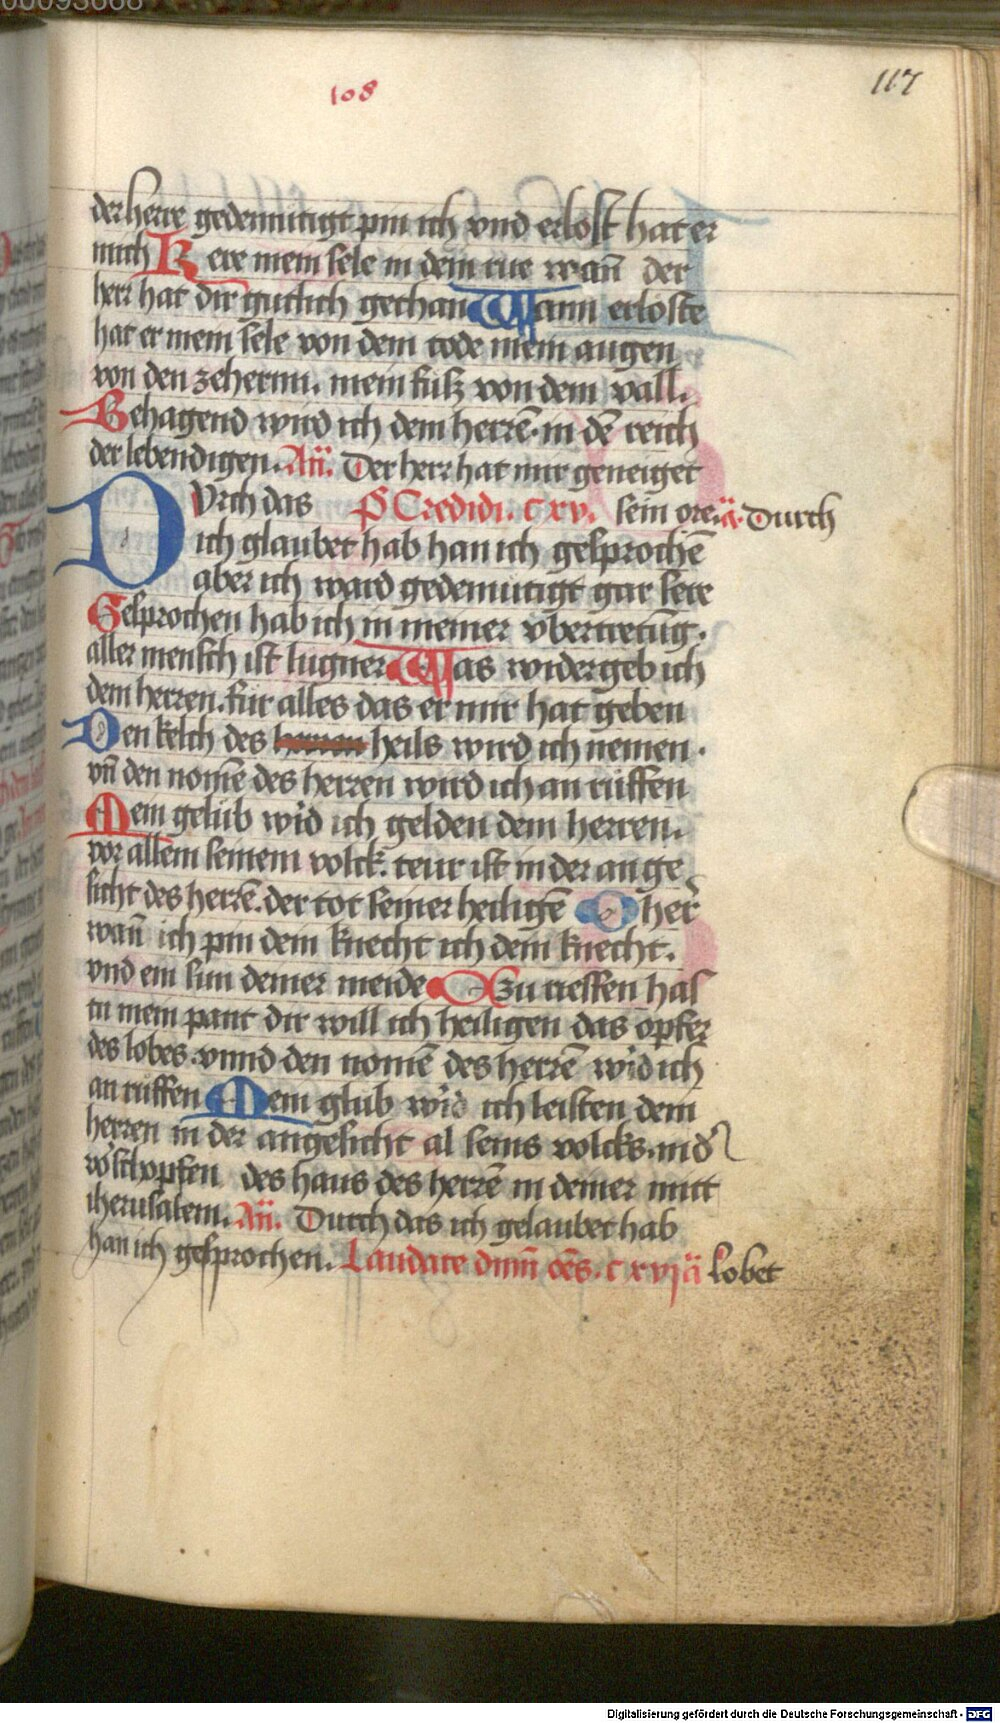 00093668
108
117
der herre gedemutigt pin ich vnd erlost hat er
mich Kere mein sele in dein rue wañ der
herr hat dir gutlich gethan Wann erloste
hat er mein sele von dem tode mein augen
von den zehernn. mein fuß von dem vall.
Behagend wird ich dem herrē. in dē reich
der lebendigen. Añ. Der herr hat mir geneiget
Durch das Ps Credidi. cxv. sein ore. ā. Durch
ich glaubet hab han ich gesprochē
aber ich ward gedemutigt gar sere
Gesprochen hab ich in meiner vbertretūg.
aller mensch ist lugner Was widergeb ich
dem herren. fur alles das er mir hat geben
Den kelch des herren heils wird ich nemen.
vñ den nomē des herren wird ich an ruffen
Mein gelub wıd ich gelden dem herren.
vor allem seinem volck. teur ist in der an ge
sicht des herrē. der tot seiner heiligē O her
wañ ich pin dein knecht ich dein knecht.
vnd ein sun deiner meide Zu rieffen has
tu mein pant dir will ich heiligen das opfer
des lobes. vnnd den nomē des herrē wıd ich
an ruffen Mein glub wıd ich leisten dem
herren in der angesicht al seins volcks. in d
vorschopfen des haus des herrē in deiner mitt
iherusalem. Añ. Durch das ich gelaubet hab
han ich gesprochen. Laudate dnm̄ oēs. cxvj ā Lobet
Digitalisierung gefördert durch die Deutsche Forschungsgemeinschaft - DFG